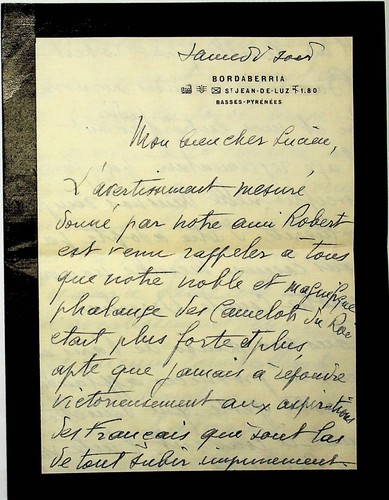 Samedi soir
BORDABERRIA
ST JEAN-DE-LUZ 1.80
BASSES-PYRÉNÉES
Mon bien cher Lucien,
L'avertissement mesuré
donné par notre ami Robert
est venu rappeler à tous
que notre noble et magnifique
phalange des Camelots du Roi
était plus forte et plus
apte que jamais à répondre
victorieusement aux aspirations
des Français qui sont las
de tout subir impunément.